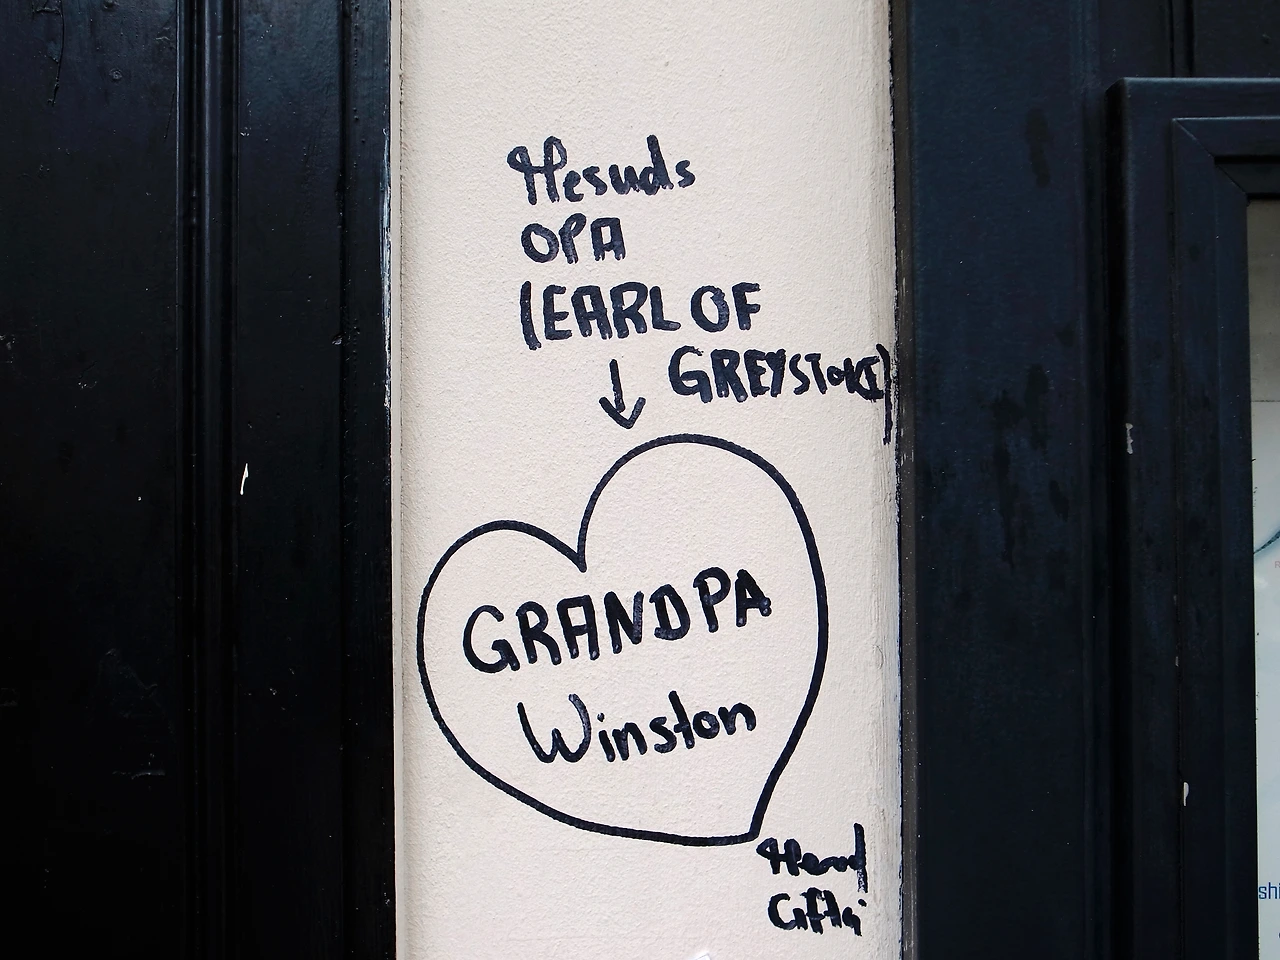 Hesuds
OPA
(EARL OF
GREYSTOKE)
GRANDPA
Winston
shi